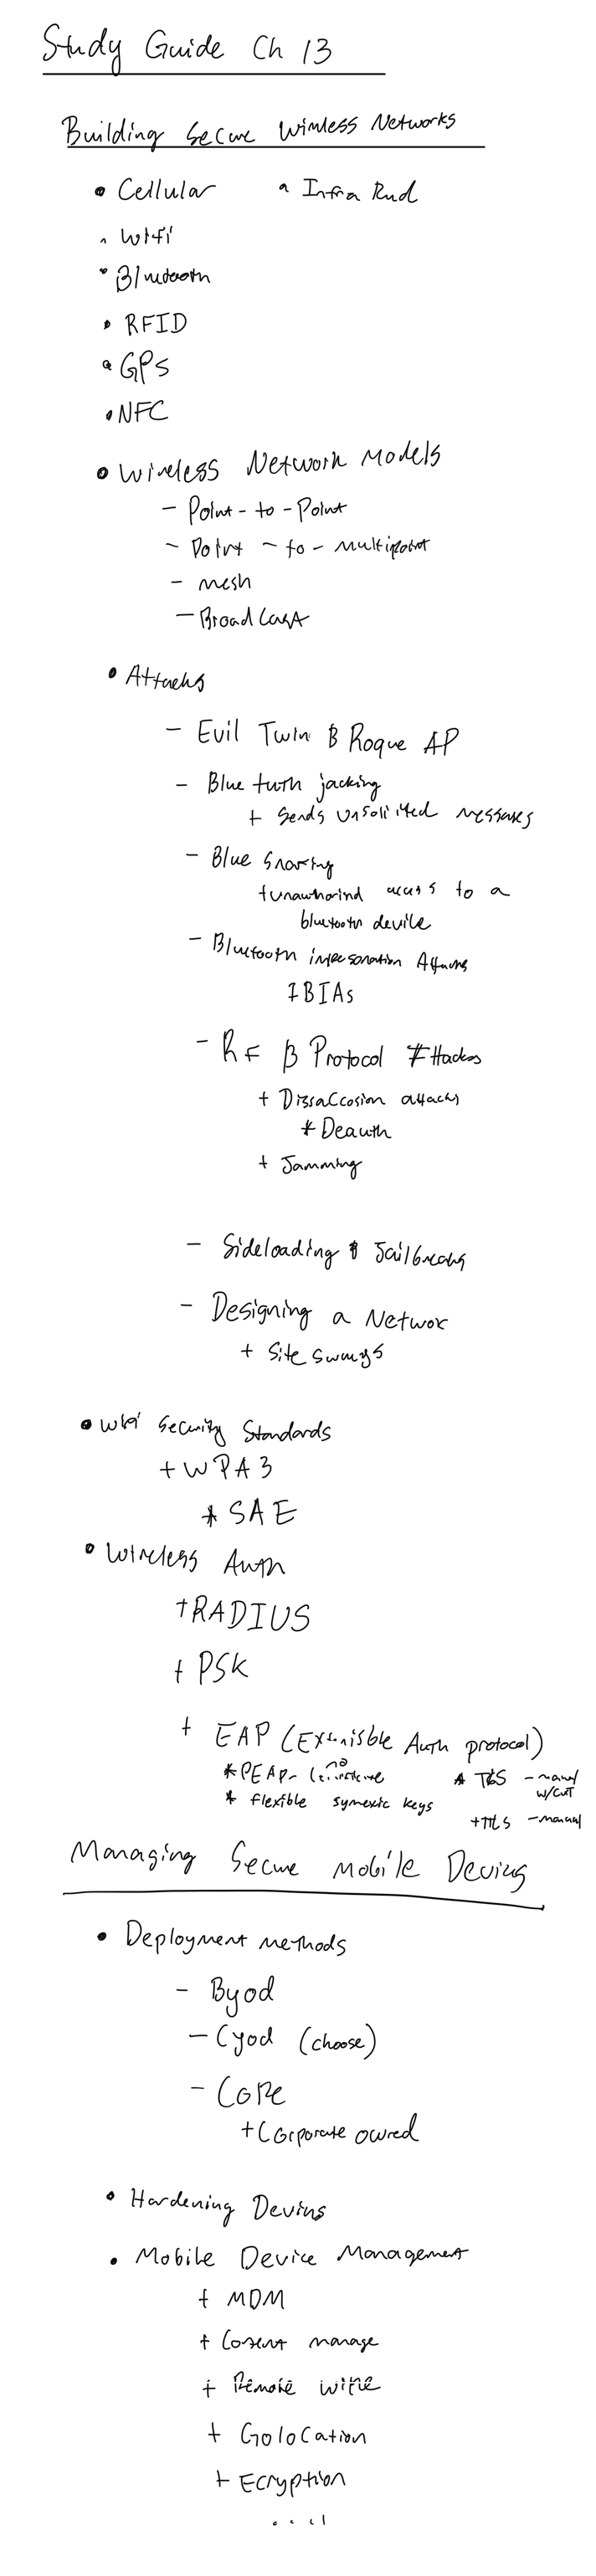 Study Guide Ch 13
Building Secure Wireless Networks
• Cellular • Infra Red
• Wifi
• Bluetooth
• RFID
• GPS
• NFC
• Wireless Network Models
- Point-to-Point
- Point-to-multipoint
- mesh
- Broadcast
• Attacks
- Evil Twin & Rogue AP
- Blue tuth jacking
+ Sends unsolited messages
- Blue Snarfing
+ unauthorized access to a
bluetooth device
- Bluetooth impersonation Attacks
+ BIAs
- RF & Protocol Attacks
+ Attacks
* Deauth
+ Jamming
- Sideloading & Jailbreaks
- Designing a Networ
+ Site Surveys
• Wifi Security Standards
+ WPA3
* SAE
• Wireless Auth
+ RADIUS
+ PSK
+ EAP (Extenisble Auth protocol)
* PEAP - no * TLS -
w/cert
* flexible keys
+ TTLS -
Managing Secure Mobile Devices
• Deployment methods
- Byod
- Cyod (choose)
- COPE
+ Corporate owned
• Hardening Devices
• Mobile Device Management
+ MDM
+ manage
+ Remote wipe
+ Golocation
+ Ecryption
....